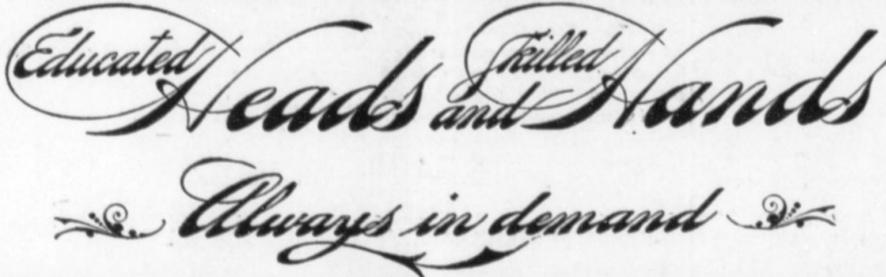 Educated Heads and Skilled Hands
Always in demand